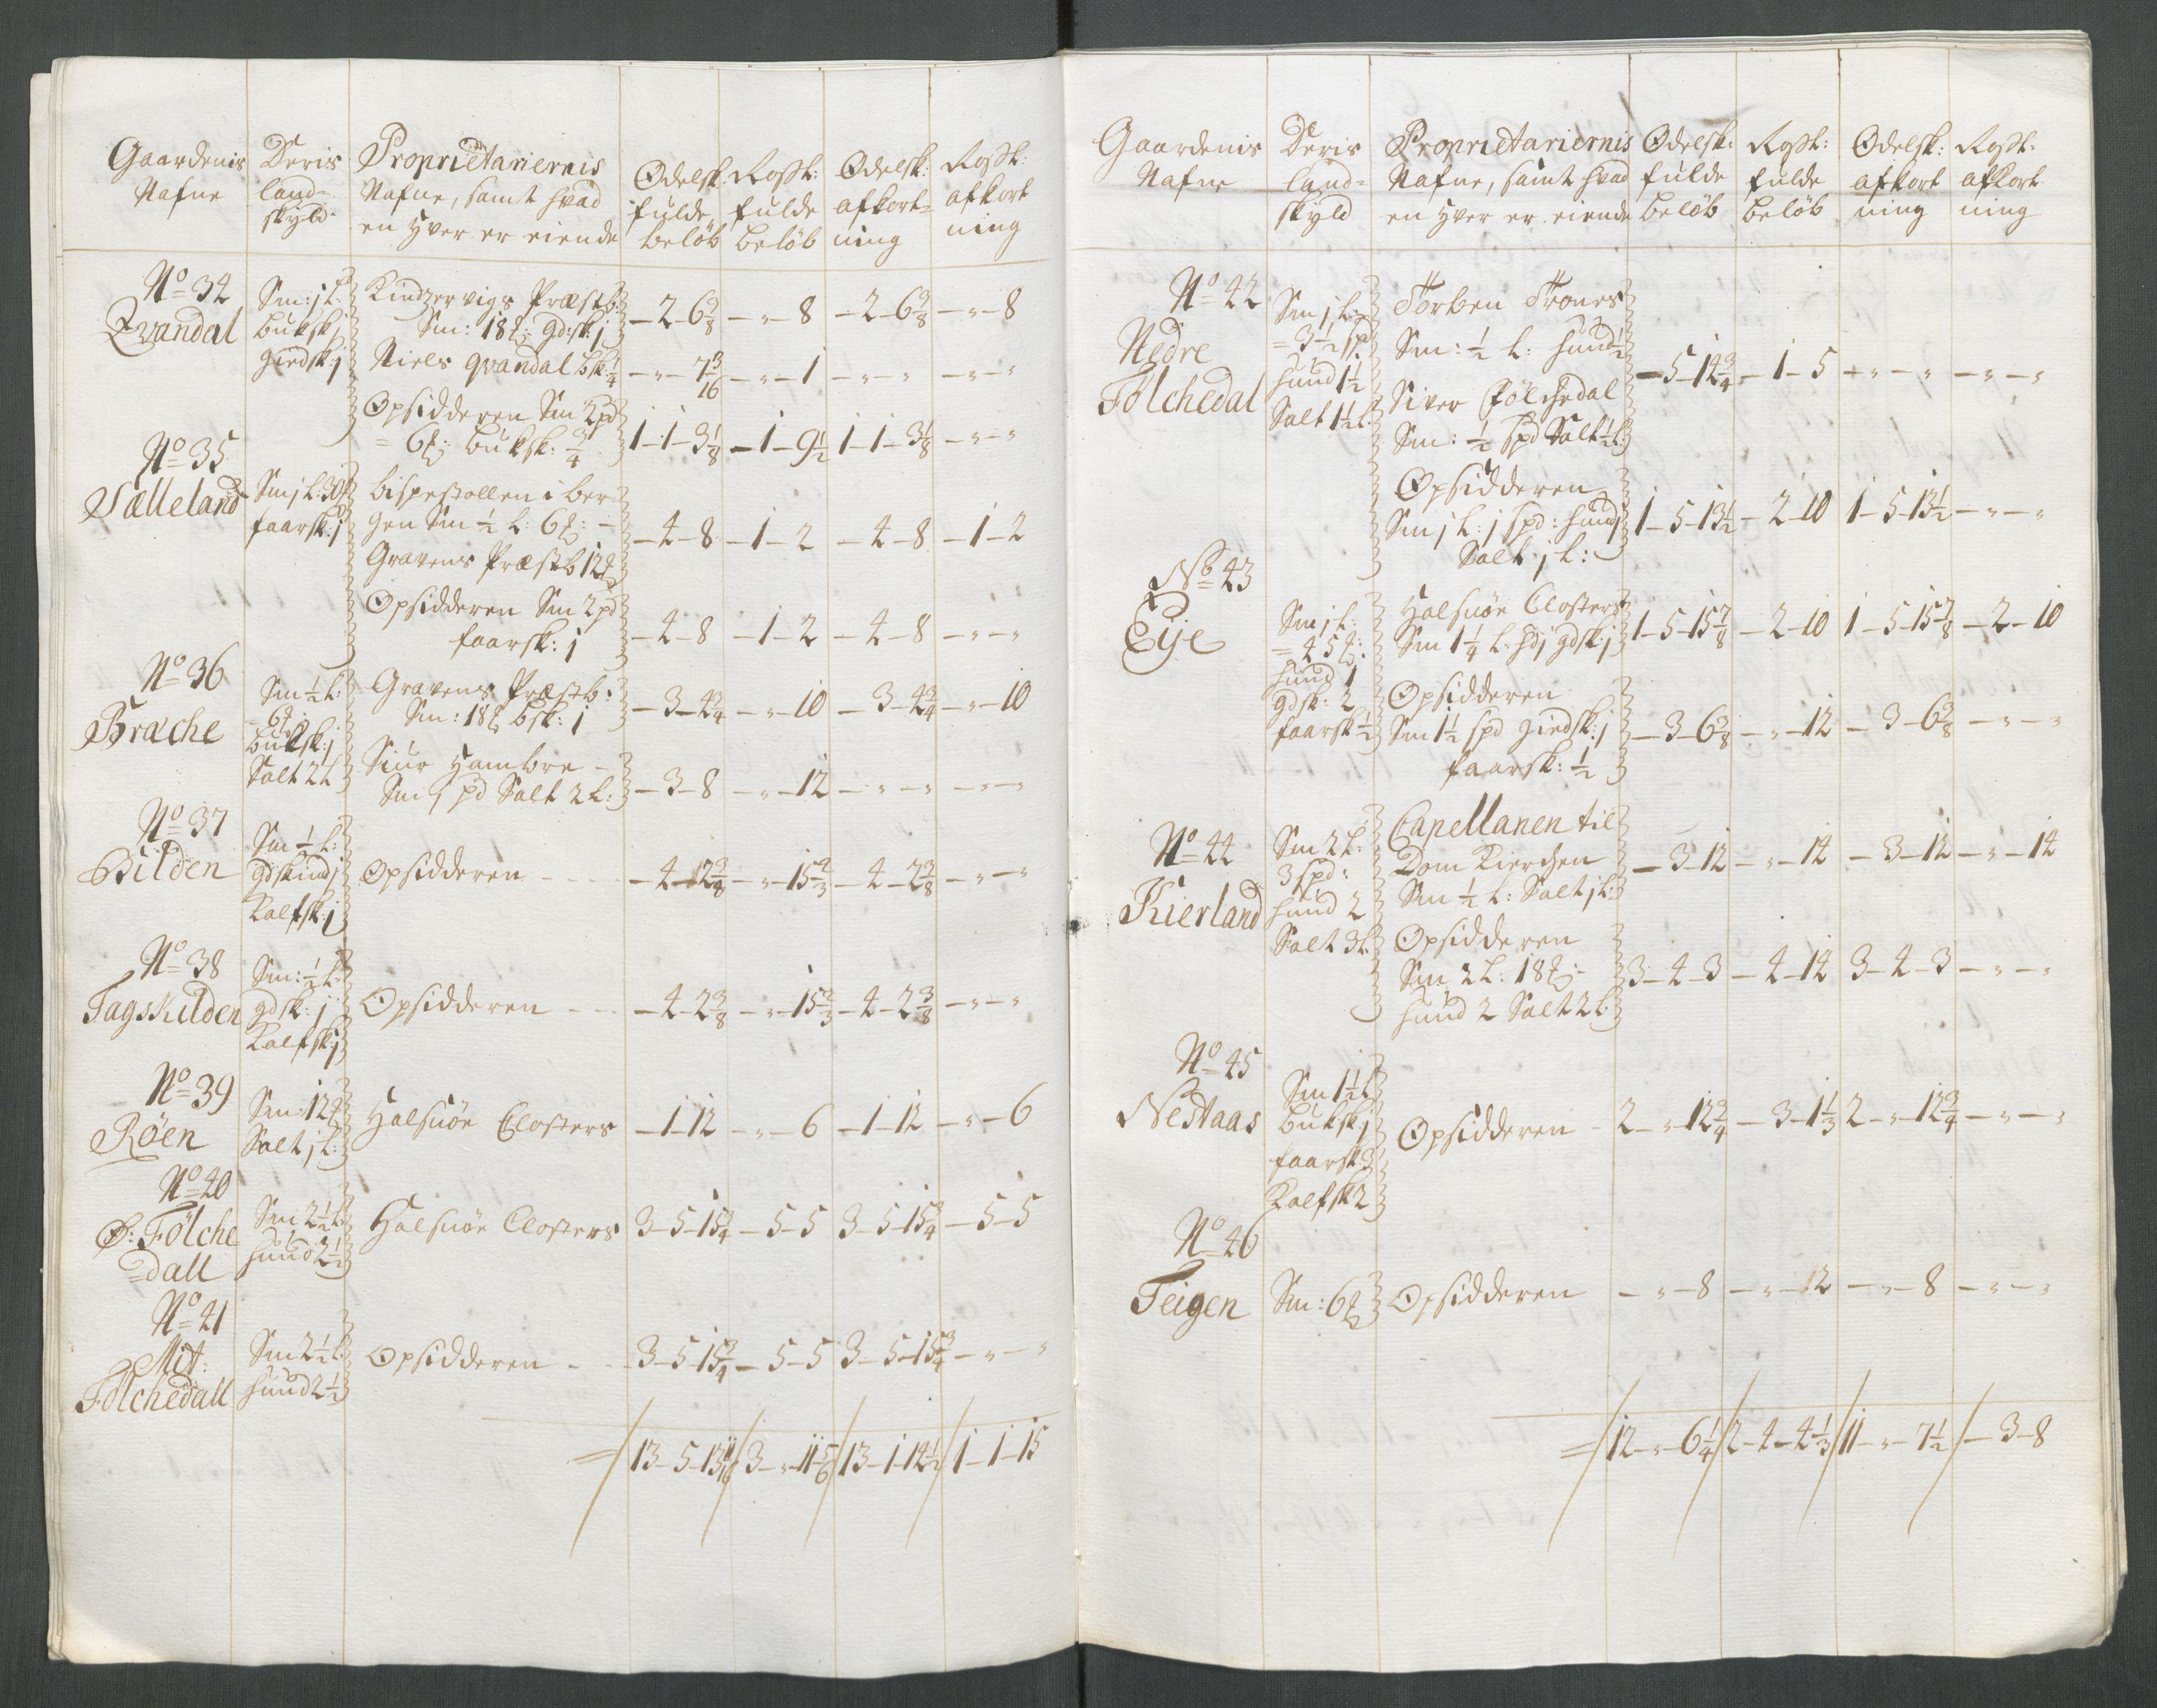 Gaardenis Nafne | Deris land= skyld | Proprietariernis Nafne, samt hvad en hver er eiende | Odelsk: fulde beløb | Rostt: fulde beløb | Odelsk: afkort= ning | Rostt: afkort ning
No 34
Qvandal
Sm: j L:
buksk j
giedsk: j
Kindzervigs Præstb:
Sm: 18 ℔: gd:sk: j | - 2 - 6 3/8 | - " - 8 | - 2 - 6 3/8 | - " - 8
Niels qvandal bk: 1/4 | - " - 7 3/16 | - " - 1 | - " - " | - " - "
Opsidderen Sm 2 pd
= 6 ℔: buksk: 3/4 | 1 - 1 - 3 1/8 | - 1 - 9 1/2 | 1 - 1 - 3 1/8 | - " - "
No 35
Sælleland
Sm j L: 30 ℔
faarsk: j
bispestollen i ber=
gen Sm 1/2 L: 6 ℔: - | - 4 - 8 | - 1 - 2 | - 4 - 8 | - 1 - 2
Gravens Præstb 12 ℔
Opsidderen Sm 2 pd
faarsk: j | - 4 - 8 | - 1 - 2 | - 4 - 8 | - " - "
No 36
Brache
Sm 1/2 L:
= 6 ℔:
buksk: j
Salt 2 L
Gravens Præstb:
Sm: 18 ℔ bsk: 1 | - 3 - 4 3/4 | - " - 10 | - 3 - 4 3/4 | - " - 10
Siur Hambre -
Sm 1 pd Salt 2 L: | - 3 - 8 | - " - 12 | - " - " | - " - "
No 37
Bilden
Sm 1/2 L:
gdskind j
Kalfsk: j
Opsidderen - - - | - 4 - 2 3/8 | - " - 15 2/3 | - 4 - 2 3/8 | - " - "
No 38
Tagskilden
Sm: 1/2 L:
gdsk: j
Kalfsk: j
Opsidderen - - | - 4 - 2 3/8 | - " - 15 2/3 | - 4 - 2 3/8 | - " - "
No 39
Røen
Sm: 12 ℔
Salt j L:
Halsnøe Closters | - 1 - 12 | - " - 6 | - 1 - 12 | - " - 6
No 40
Ø: Fölche
=dall
Sm 2 1/2 L:
hund 2 1/2
Halsnøe Closters | 3 - 5 - 15 3/4 | - 5 - 5 | 3 - 5 - 15 3/4 | - 5 - 5
No 41
Mit:
Fölchedall
Sm 2 1/2 L:
hund 2 1/2
Opsidderen - - | 3 - 5 - 15 3/4 | - 5 - 5 | 3 - 5 - 15 3/4 | - " - "
= / 13 - 5 - 13 11/16 / 3 - " - 11 5/6 / 13 - 1 - 14 1/2 / 1 - 1 - 15
Gaardenis Nafne | Deris land= skyld | Proprietariernis Nafne, samt hvad en hver er eiende | Odelsk: fulde beløb | Rostt: fulde beløb | Odelsk: afkort ning | Rostt: afkort ning
No 42
Nedre
Fölchedal
Sm j L:
= 3 1/2 spd
hund 1 1/2
Salt 1 1/2 L
Torben Trones
Sm: 1/2 L: hund 1/2
Siver Fölchedal | - 5 - 14 3/4 | - 1 - 5 | - " - " | - " - "
Sm: 1/2 spd Salt 1/2 L:
Opsidderen
Sm j L: j spd: hund j | 1 - 5 - 13 1/2 | - 2 - 10 | 1 - 5 - 13 1/2 | - " - "
Salt j L:
No 43
Eije
Sm j L:
= 45 ℔:
hund 1
gdsk: 2
faarsk 1/2
Halsnøe Closters
Sm 1 1/4 L: hd j gdsk j | 1 - 5 - 15 7/8 | - 2 - 10 | 1 - 5 - 15 7/8 | - 2 - 10
Opsidderen
Sm 1 1/2 spd giedsk: j | - 3 - 6 3/8 | - " - 12 | - 3 - 6 3/8 | - " - "
faarsk: 1/2
No 44
Kierland
Sm 2 L:
3 spd:
hund 2
Salt 3 L
Capellanen til
Dom Kierchen | - 3 - 12 | - " - 14 | - 3 - 12 | - " - 14
Sm 1/2 L: Salt j L:
Opsidderen
Sm 2 L: 18 ℔: - | 3 - 4 - 3 | - 4 - 14 | 3 - 4 - 3 | - " - "
hund 2 Salt 2 L:
No 45
Nestaas
Sm 1 1/2 L
buksk j
faarsk: 3
Kalfsk 2
Opsidderen - | 2 - " - 12 3/4 | - 3 - 1 1/3 | 2 - " - 12 3/4 | - " - "
No 46
Teigen
Sm: 6 ℔
Opsidderen | - " - 8 | - " - 12 | - " - 8 | - " - "
= / 12 - " - 6 1/4 / 2 - 4 - 4 1/3 / 11 - " - 7 1/2 / - 3 - 8